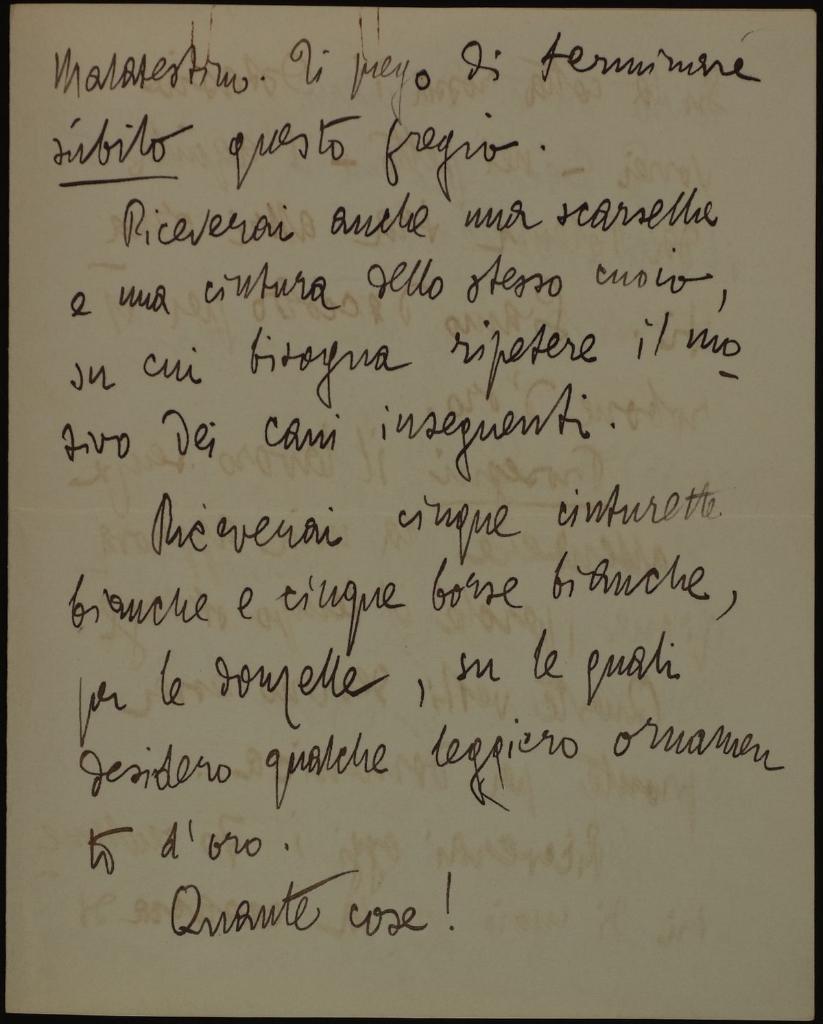 Malatestino. Ti prego di terminare
súbito questo fregio.
Riceverai anche una scarsella
e una cintura dello stesso cuoio,
su cui bisogna ripetere il mo
tivo dei cani inseguenti.
Riceverai cinque cinturette
bianche e cinque borse bianche,
per le donzelle, su le quali
desidero qualche leggiero ornamen
to d'oro.
Quante cose!